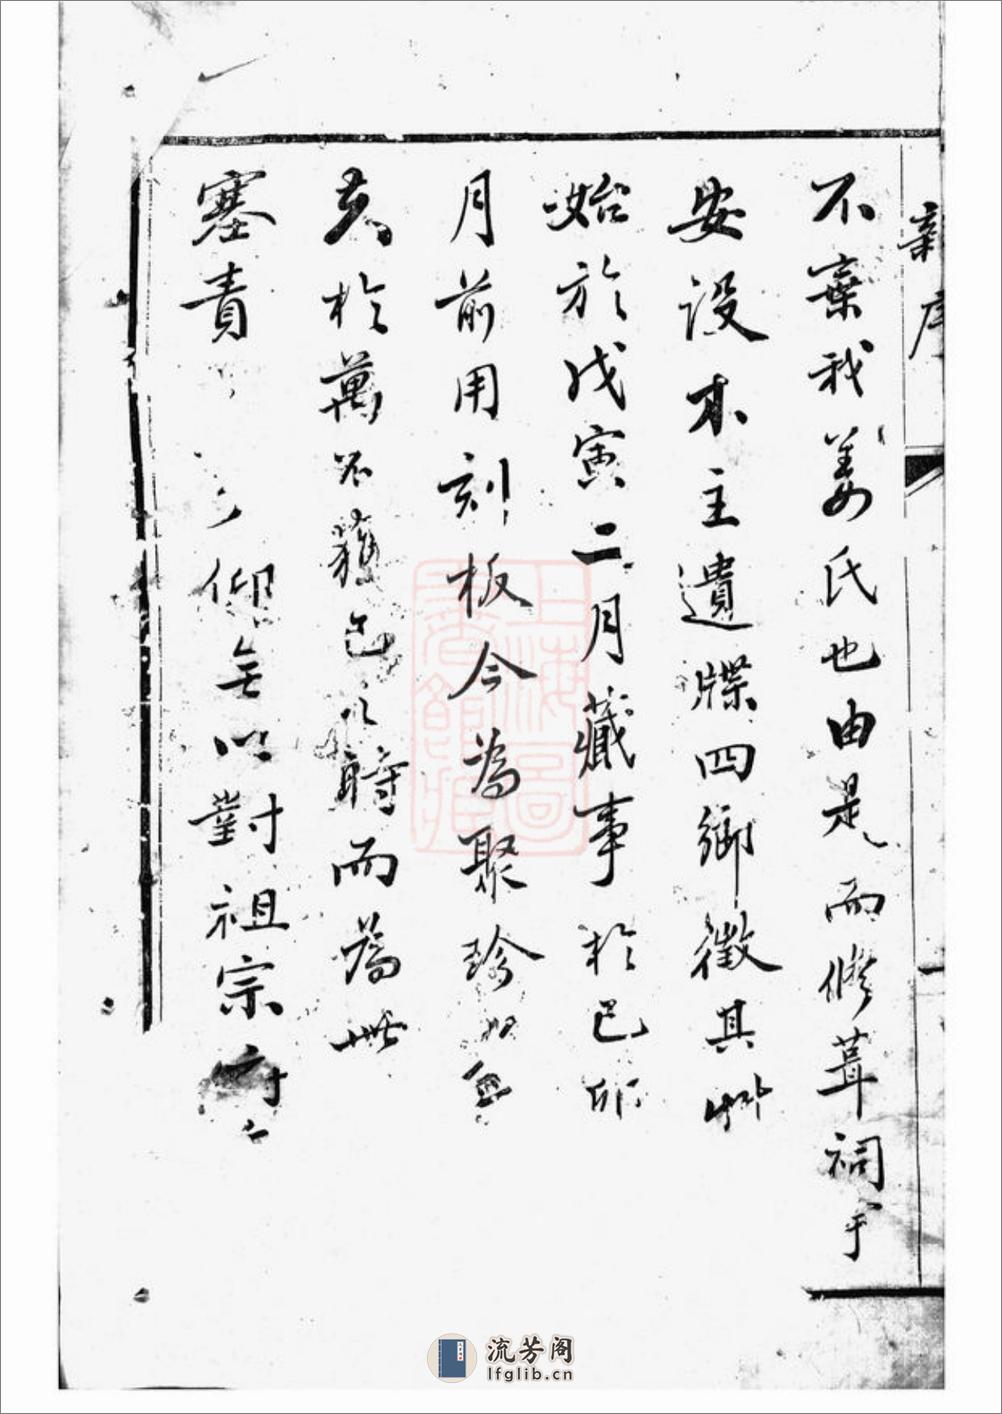 新序
不棄我姜氏也由是而修葺祠宇
安設木主遺牒四鄉徵其艸
始於戊寅二月蕆事於己卯
月前用刻板今為聚珍
夫於萬不獲已之時而為此
塞責 仰無以對祖宗
上海圖書館藏
流芳阁
lfglib.cn